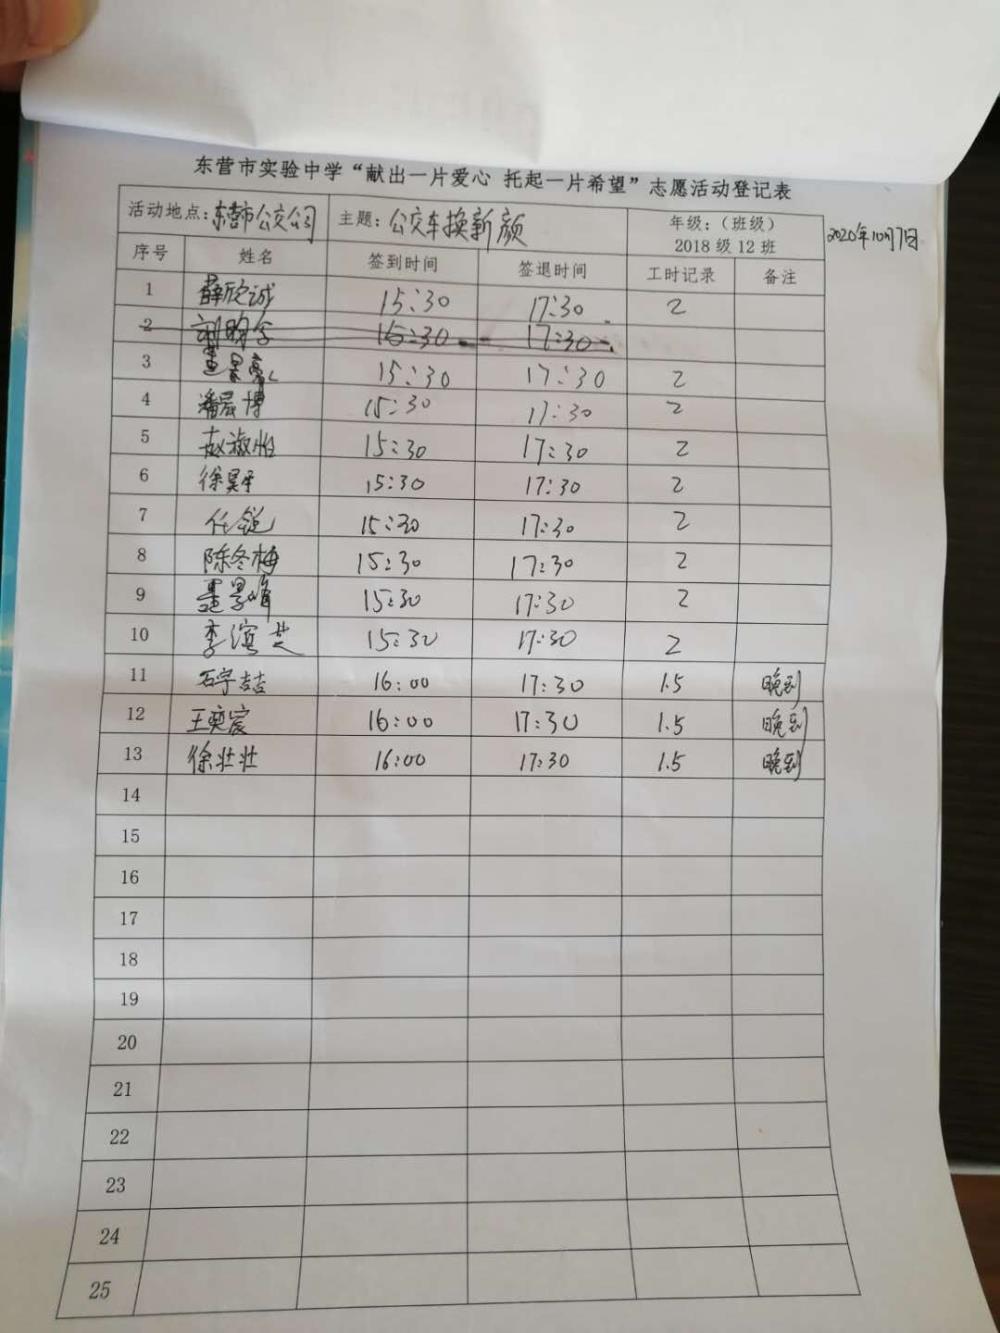 东营市实验中学“献出一片爱心 托起一片希望”志愿活动登记表
活动地点:东营市公交公司 主题:公交车换新颜 年级:(班级) 2018级12班 2020年10月7日
序号 姓名 签到时间 签退时间 工时记录 备注
1 薛欣诚 15:30 17:30 2
2 15:30 17:30
3 15:30 17:30 2
4 潘晨博 15:30 17:30 2
5 赵淑怡 15:30 17:30 2
6 徐昊 15:30 17:30 2
7 任锐 15:30 17:30 2
8 陈冬梅 15:30 17:30 2
9 15:30 17:30 2
10 李滨芝 15:30 17:30 2
11 石宇喆 16:00 17:30 1.5 晚到
12 王奕宸 16:00 17:30 1.5 晚到
13 徐壮壮 16:00 17:30 1.5 晚到
14
15
16
17
18
19
20
21
22
23
24
25